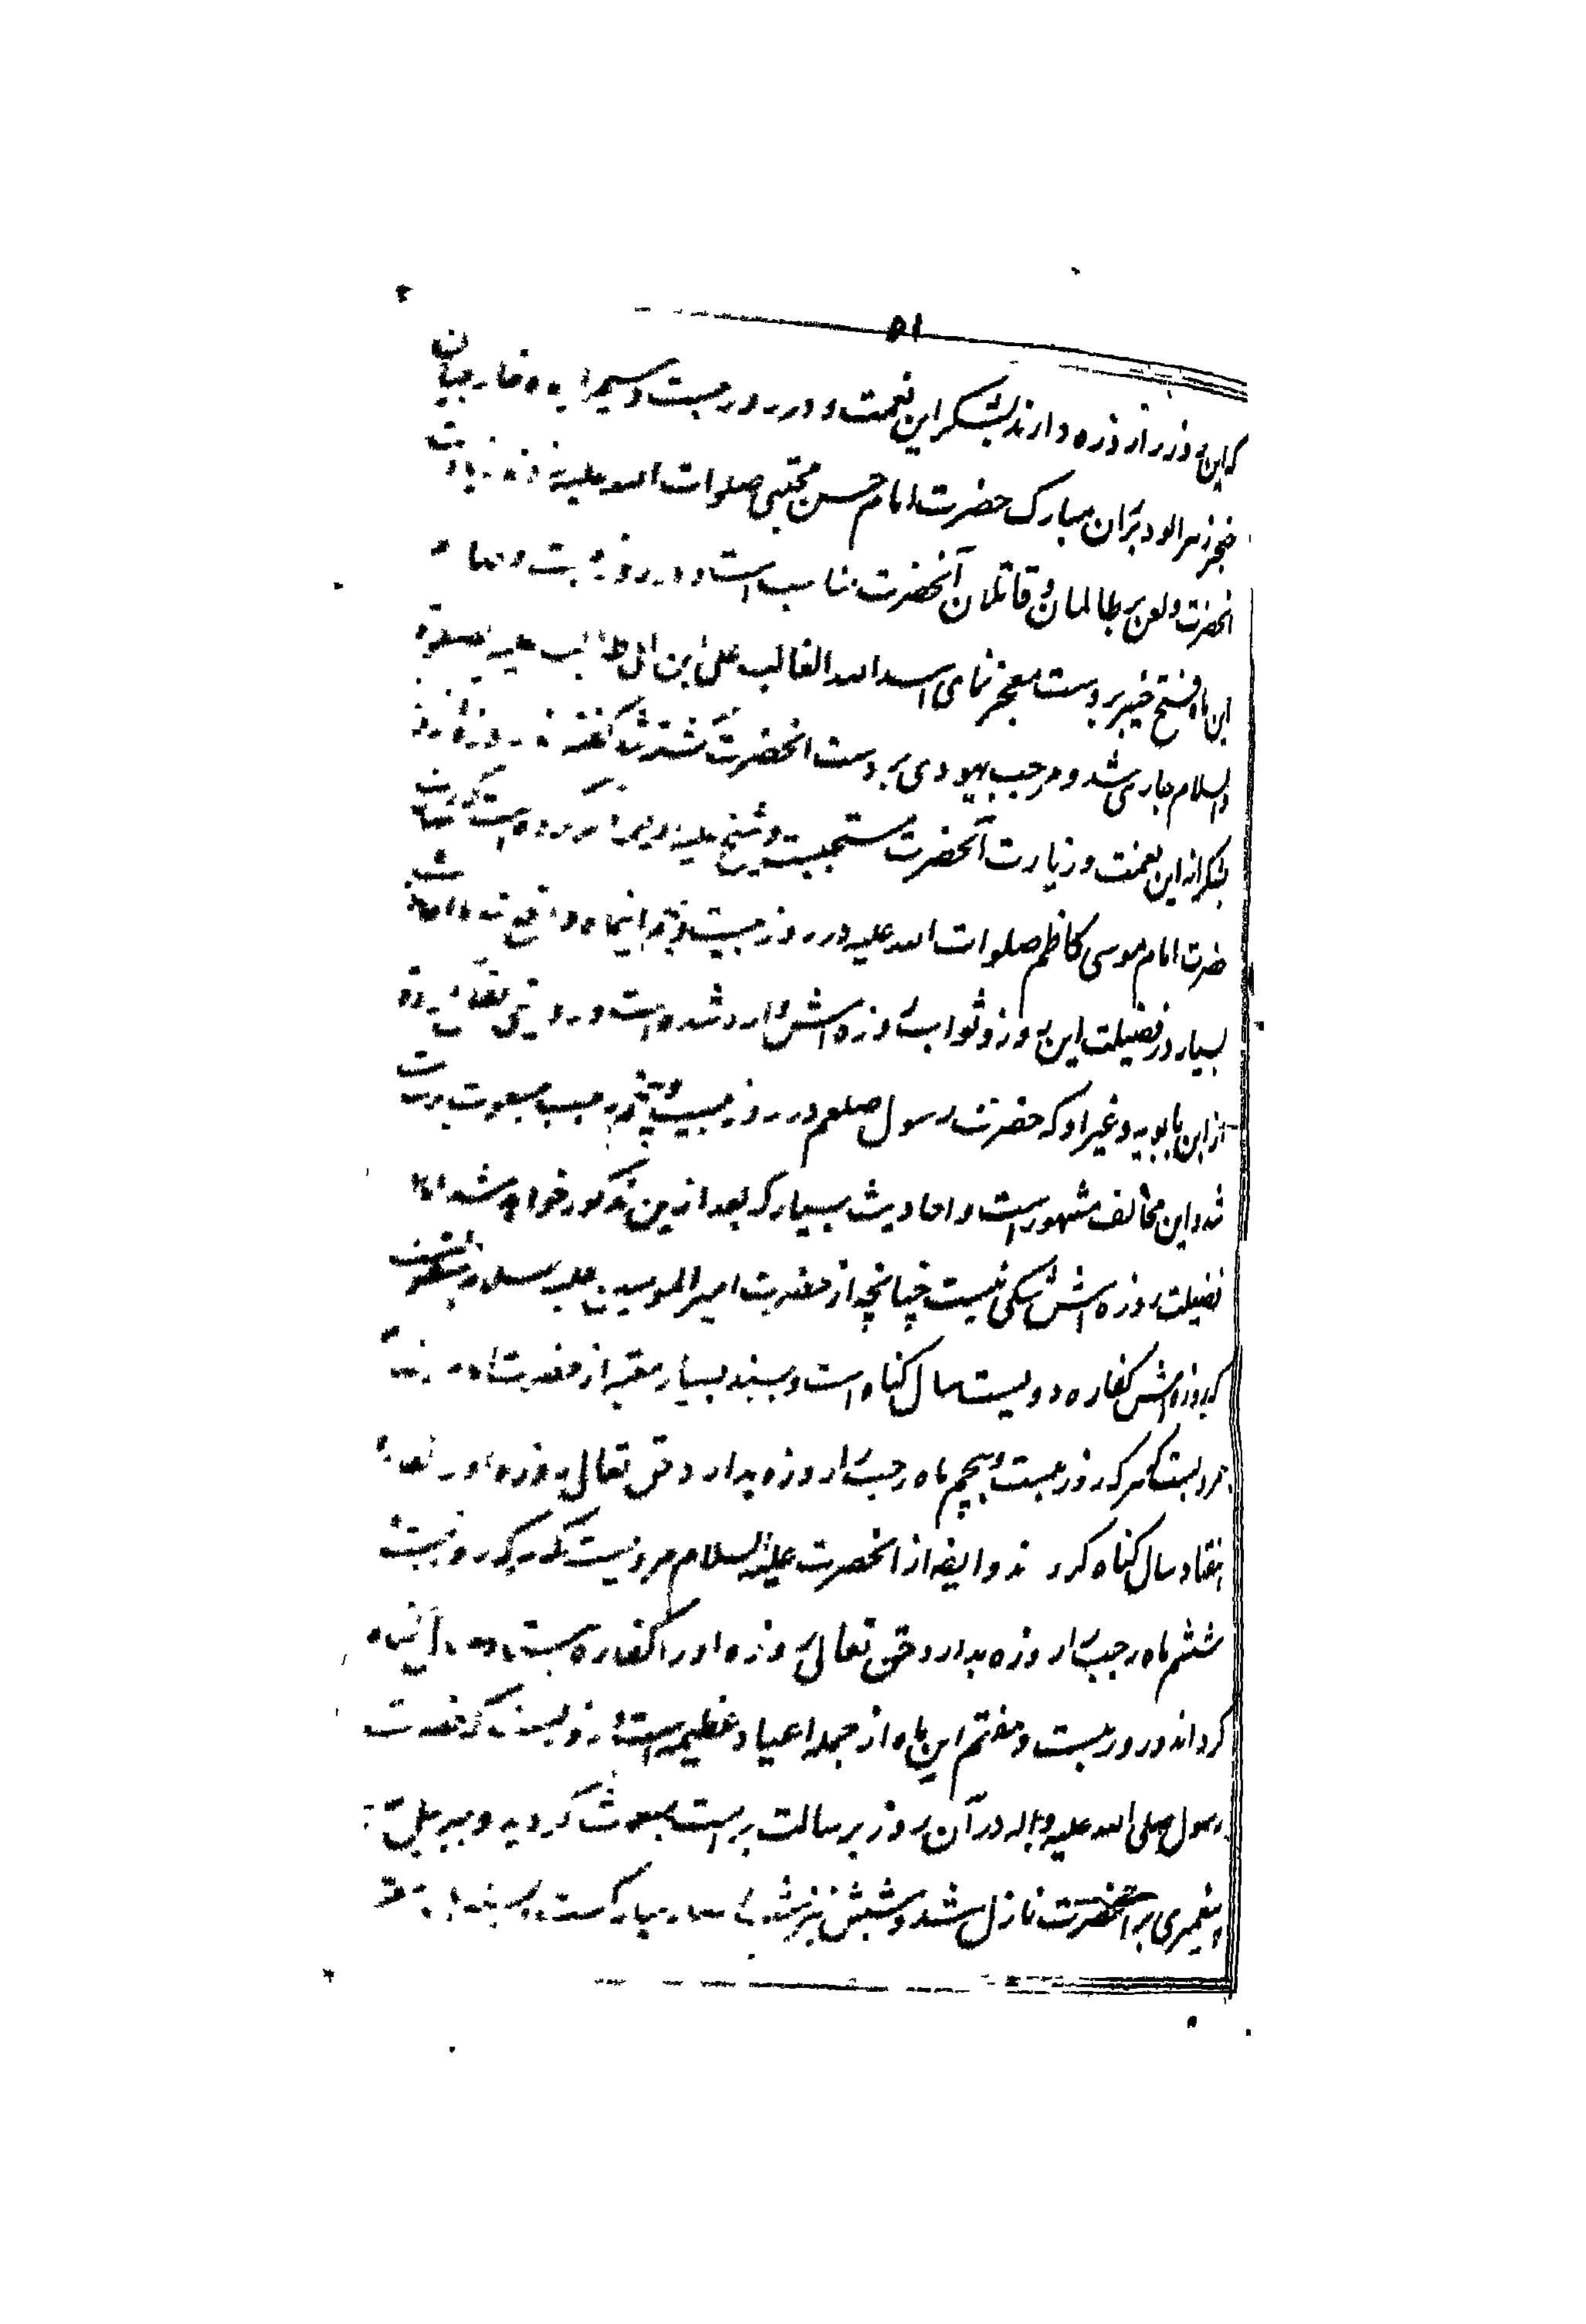 ۵۱
که این روز را روزه دارند بشکر این نعمت و در روز بیست و سیم این ماه خارجیان
خنجر زهرالود بر ران مبارک حضرت امام حسن مجتبی صلوات الله علیه زدند زیارت
انحضرت و لعن بر ظالمان و قاتلان آنحضرت مناسب است و در روز بیست و چهارم
این ماه فتح خیبر بر دست معجز نمای اسد الله الغالب علی ابن ابی طالب علیه الصلوة
والسلام جاری شد و مرحب یهودی بر دست انحضرت کشته شد گفته اند روزه این روز
بشکرانه این نعمت و زیارت آنحضرت مستحبست و شیخ علیه الرحمه ذکر کرده است که وفات
حضرت امام موسی کاظم صلوات الله علیه در روز بیست و پنجم اینماه واقع شده احادیث
بسیار در فضیلت این روز و ثواب روزه اش وارد شده است و روایتی نقل کرده
از ابن بابویه و غیر او که حضرت رسول صلعم در روز بیست و پنجم رجب مبعوث برسالت
شد و این مخالف مشهور است و احادیث بسیار که بعد ازین مذکور خواهد شد اما در
فضیلت روزه اش شکی نیست چنانچه از حضرت امیر المومنین علیه السلام منقولست
که روزه اش کفاره دویست سال گناه است و بسند بسیار معتبر از حضرت امام رضا
مرویست که هر که روز بیست و پنجم ماه رجب را روزه بدارد حق تعالی روزه او را کفاره
هفتاد سال گناه گرداند و ایضا از انحضرت علیه السلام مرویست که هر که روز بیست و
ششم ماه رجب را روزه بدارد حق تعالی روزه او را کفاره هشتاد سال گناه
گرداند و روز بیست و هفتم این ماه از جمله اعیاد عظیمه است و روزیست که حضرت
رسول صلی الله علیه و اله در آن روز برسالت مبعوث گردید و جبرئیل
پیغمبری بر انحضرت نازل شد و شبش نیز بسیار مبارکست